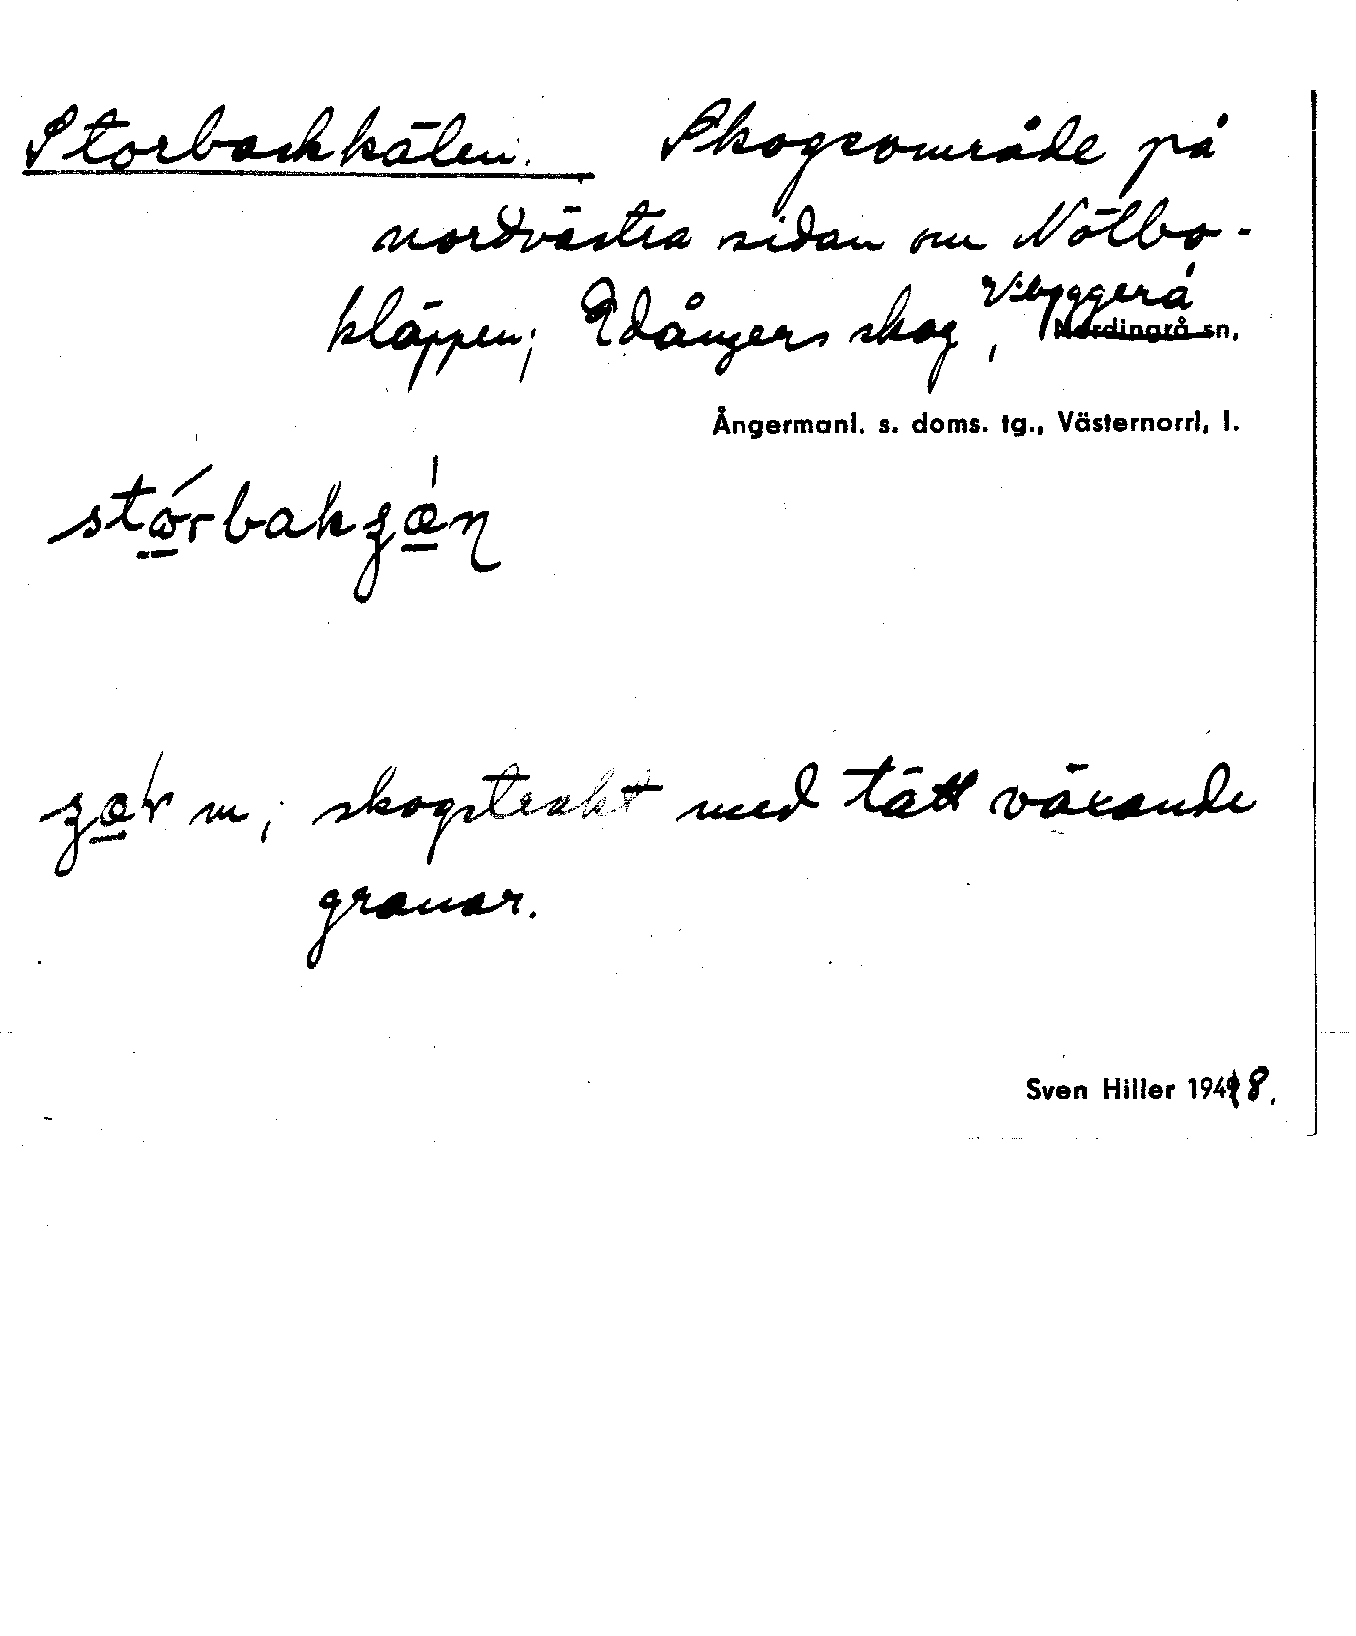 Storbackkälen. Skogsområde på
nordvästra sidan om Nölbo-
kläppen; Edångers skog, Vibyggerå
Nordingrå sn,
Ångermanl. s. doms. tg., Västernorrl, l.
m; skogstrakt med tätt växande
granar.
Sven Hiller 1948.